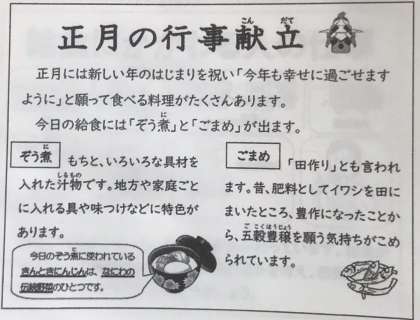 正月の行事献立
正月には新しい年のはじまりを祝い「今年も幸せに過ごせます
ように」と願って食べる料理がたくさんあります。
今日の給食には「ぞう煮」と「ごまめ」が出ます。
ぞう煮
もちと、いろいろな具材を
入れた汁物です。地方や家庭ごと
に入れる具や味つけなどに特色が
あります。
今日のぞう煮に使われている
きんときにんじんは、なにわの
伝統野菜のひとつです。
ごまめ
「田作り」とも言われ
ます。昔、肥料としてイワシを田に
まいたところ、豊作になったことか
ら、五穀豊穣を願う気持ちがこめ
られています。